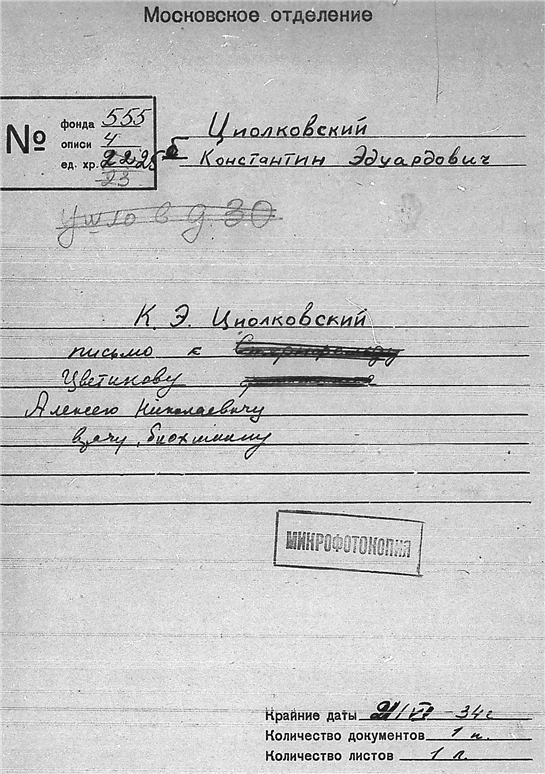 Московское отделение
№
фонда 555
описи 4
ед. хр.
23
Циолковский
Константин Эдуардович
ушло в д. 30
К. Э. Циолковский
письмо к
Цветикову
Алексею Николаевичу
врачу, биохимику
МИКРОФОТОКОПИЯ
Крайние даты -34г
Количество документов 1 п.
Количество листов 1 л.